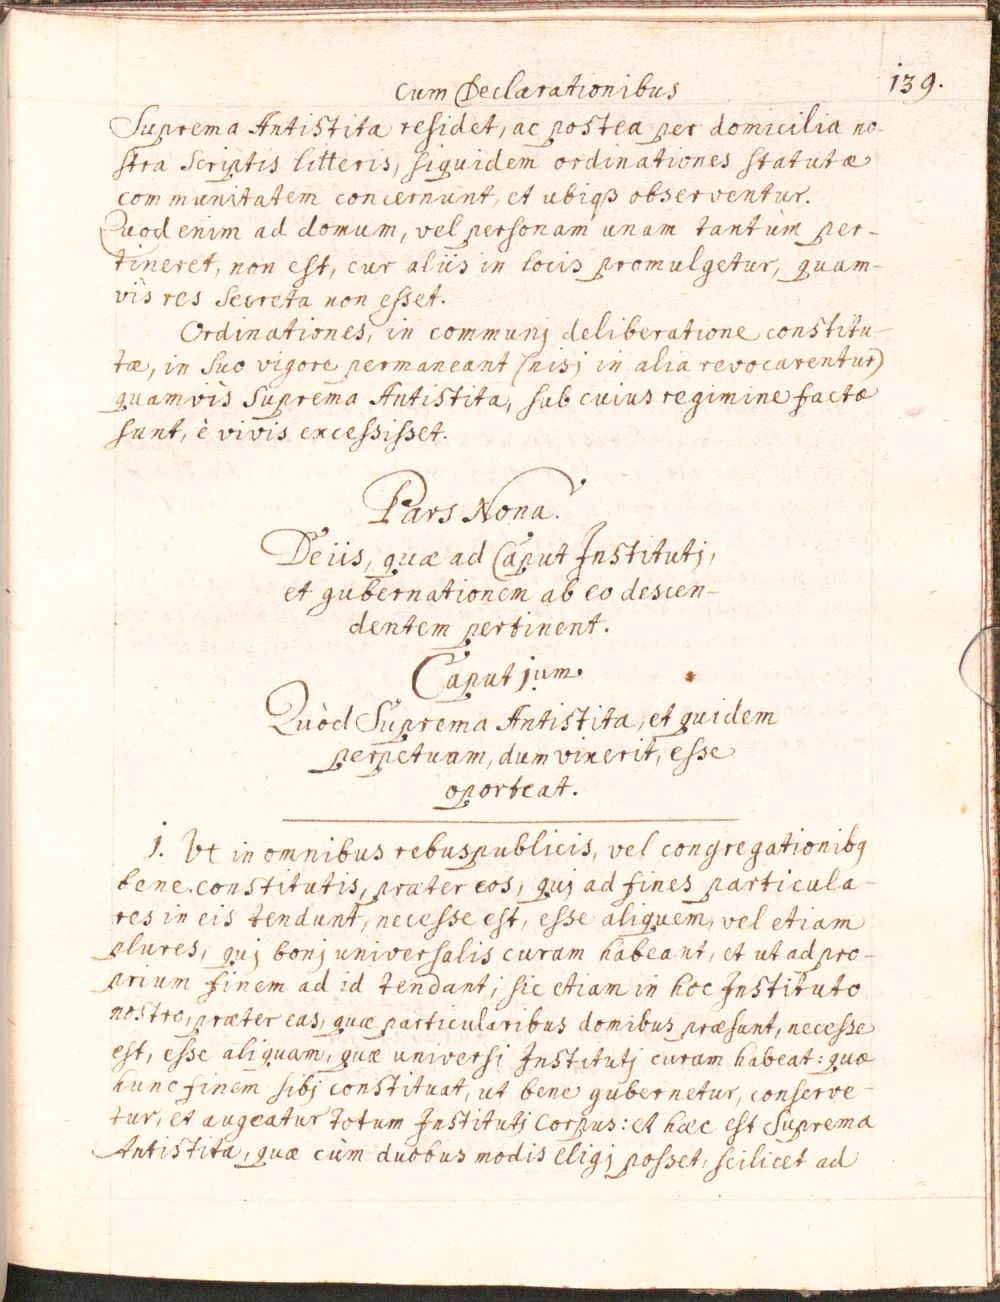 cum Declarationibus 139.
Suprema Antistita residet, ac postea per domicilia no-
stra scriptis litteris, siquidem ordinationes statutæ
communitatem concernunt, et ubiqꝫ observentur.
Quod enim ad domum, vel personam unam tantùm per-
tineret, non est, cur aliis in locis promulgetur, quam-
vis res secreta non esset.
Ordinationes, in communj deliberatione constitu-
tæ, in suo vigore permaneant (nisj in alia revocarentur)
quamvis Suprema Antistita, sub cuius regimine factæ
sunt, è vivis excessisset.
Pars Nona.
De iis, quæ ad Caput Institutj,
et gubernationem ab eo descen-
dentem pertinent.
Caput jum.
Quòd Suprema Antistita, et quidem
perpetuam, dum vixerit, esse
oporteat.
1. Ut in omnibus rebuspublicis, vel congregationibꝯ
bene constitutis, præter eos, quj ad fines particula-
res in eis tendunt, necesse est, esse aliquem, vel etiam
plures, quj bonj universalis curam habeant, et ut ad pro-
prium finem ad id tendant; sic etiam in hoc Instituto
nostro, præter eas, quæ particularibus domibus præsunt, necesse
est, esse aliquam, quæ universi Institutj curam habeat: quæ
hunc finem sibj constituat, ut bene gubernetur, conserve-
tur, et augeatur totum Institutj Corpus: et hæc est Suprema
Antistita, quæ cùm duobus modis eligj posset, scilicet ad